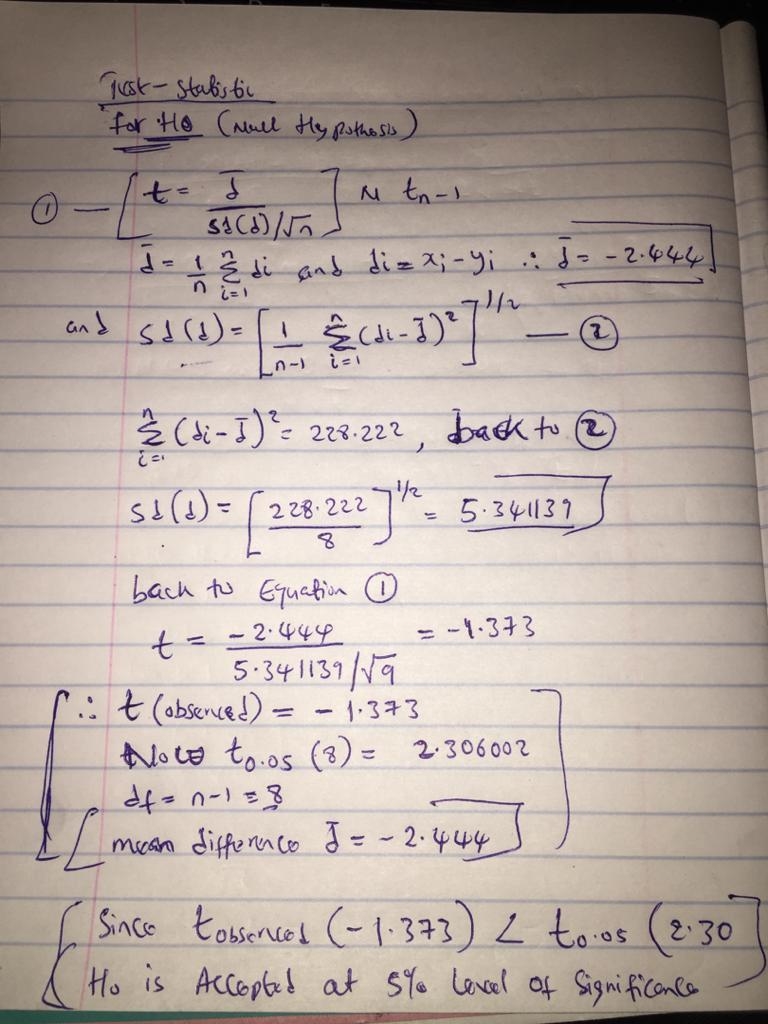 Test-Statistic
for H0 (Null Hypothesis)
① — [t = d̄ / (sd(d)/√n)] ~ tn-1
d̄ = 1/n Σ(i=1 to n) di and di = xi - yi ∴ d̄ = -2.444
and sd(d) = [1/(n-1) Σ(i=1 to n) (di - d̄)²]^1/2 — ②
Σ(i=1 to n) (di - d̄)² = 228.222, back to ②
sd(d) = [228.222 / 8]^1/2 = 5.341139
back to Equation ①
t = -2.444 / (5.341139/√9) = -1.373
∴ t(observed) = -1.373
Now t0.05 (8) = 2.306002
df = n-1 = 8
mean difference d̄ = -2.444
Since tobserved (-1.373) < t0.05 (2.30
H0 is Accepted at 5% level of Significance